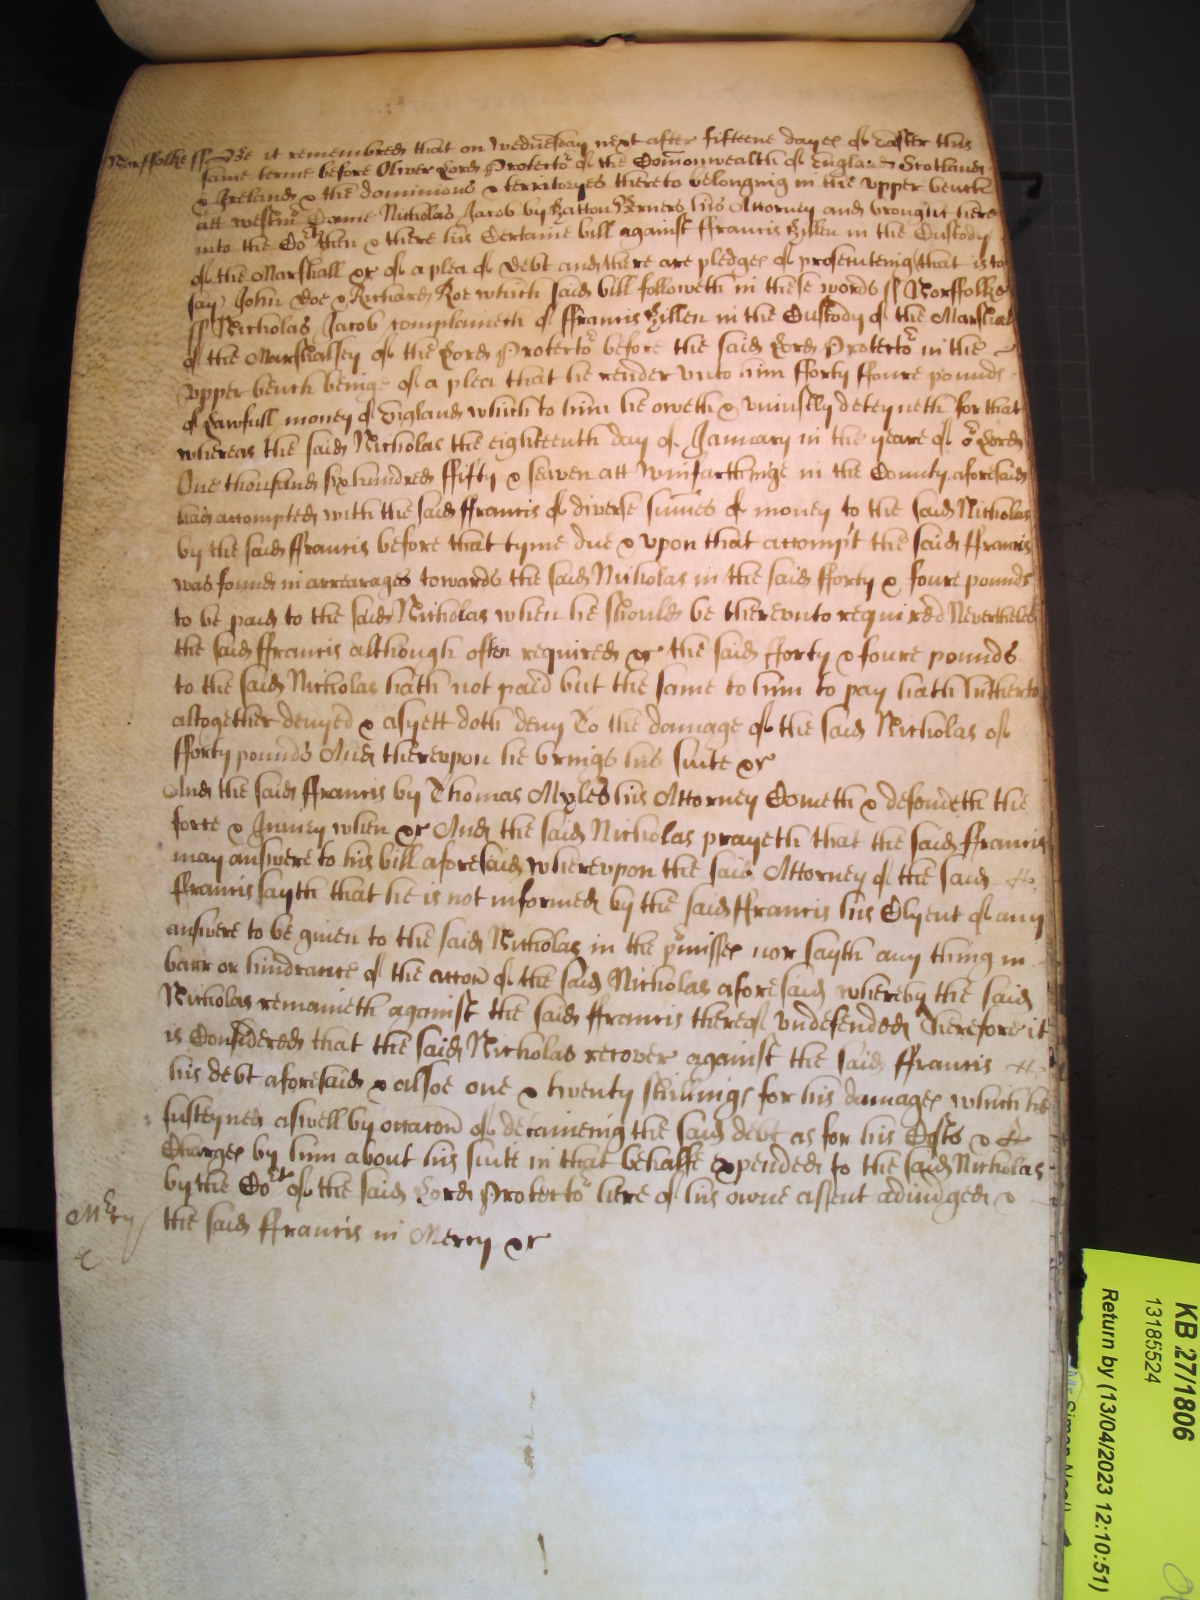 Norffolke ss Bee it remembred that on Wednesday next after fifteene dayes of Easter this
same terme before Oliver Lord Protector of the Comonwealth of England Scotland
& Ireland & the dominions & territoryes thereto belonging in the upper bench
att Westmr Came Nicholas Jacob by Hatton Berners his Attorney and brought here
into the Cort then & there his Certaine bill against ffrancis Hillen in the Custody
of the Marshall &c of a plea of debt and there are pledges of prosecuteing that is to
say John Doe & Richard Roe which said bill followeth in these words ss Norffolke
ss Nicholas Jacob complaineth of ffrancis Hillen in the Custody of the Marshall
of the Marshalsey of the Lord Protector before the said Lord Protector in the
upper bench beinge of a plea that he render unto him fforty ffoure pounds
of Lawfull money of England which to him he oweth & uniustly deteyneth for that
whereas the said Nicholas the eighteenth day of January in the yeare of or Lord
One thousand six hundred ffifty & seaven att Winfarthinge in the County aforesaid
had accompted with the said ffrancis of diverse sumes of money to the said Nicholas
by the said ffrancis before that tyme due & upon that accompt the said ffrancis
was found in arrearages towards the said Nicholas in the said fforty & foure pounds
to be paid to the said Nicholas when he should be thereunto required Neverthelesse
the said ffrancis although often required &c the said fforty & foure pounds
to the said Nicholas hath not paid but the same to him to pay hath hitherto
altogether denyed & as yett doth deny To the damage of the said Nicholas of
fforty pounds And thereupon he brings his suite &c
And the said ffrancis by Thomas Myles his Attorney Cometh & defendeth the
force & Iniury when &c And the said Nicholas prayeth that the said ffrancis
may answere to his bill aforesaid whereupon the said Attorney of the said
ffrancis sayth that he is not informed by the said ffrancis his Clyent of any
answere to be given to the said Nicholas in the prmisses nor sayth any thing in
barr or hindrance of the accon of the said Nicholas aforesaid whereby the said
Nicholas remaineth against the said ffrancis thereof undefended Therefore it
is Considered that the said Nicholas recover against the said ffrancis
his debt aforesaid & alsoe one & twenty shillings for his damages which he
susteyned aswell by occacon of detaineing the said debt as for his Costs &
Charges by him about his suite in that behalfe expended to the said Nicholas
by the Cort of the said Lord Protector here of his owne assent adiudged &
Mercy the said ffrancis in Mercy &c
KB 27/1806
13185524
Return by (13/04/2023 12:10:51)